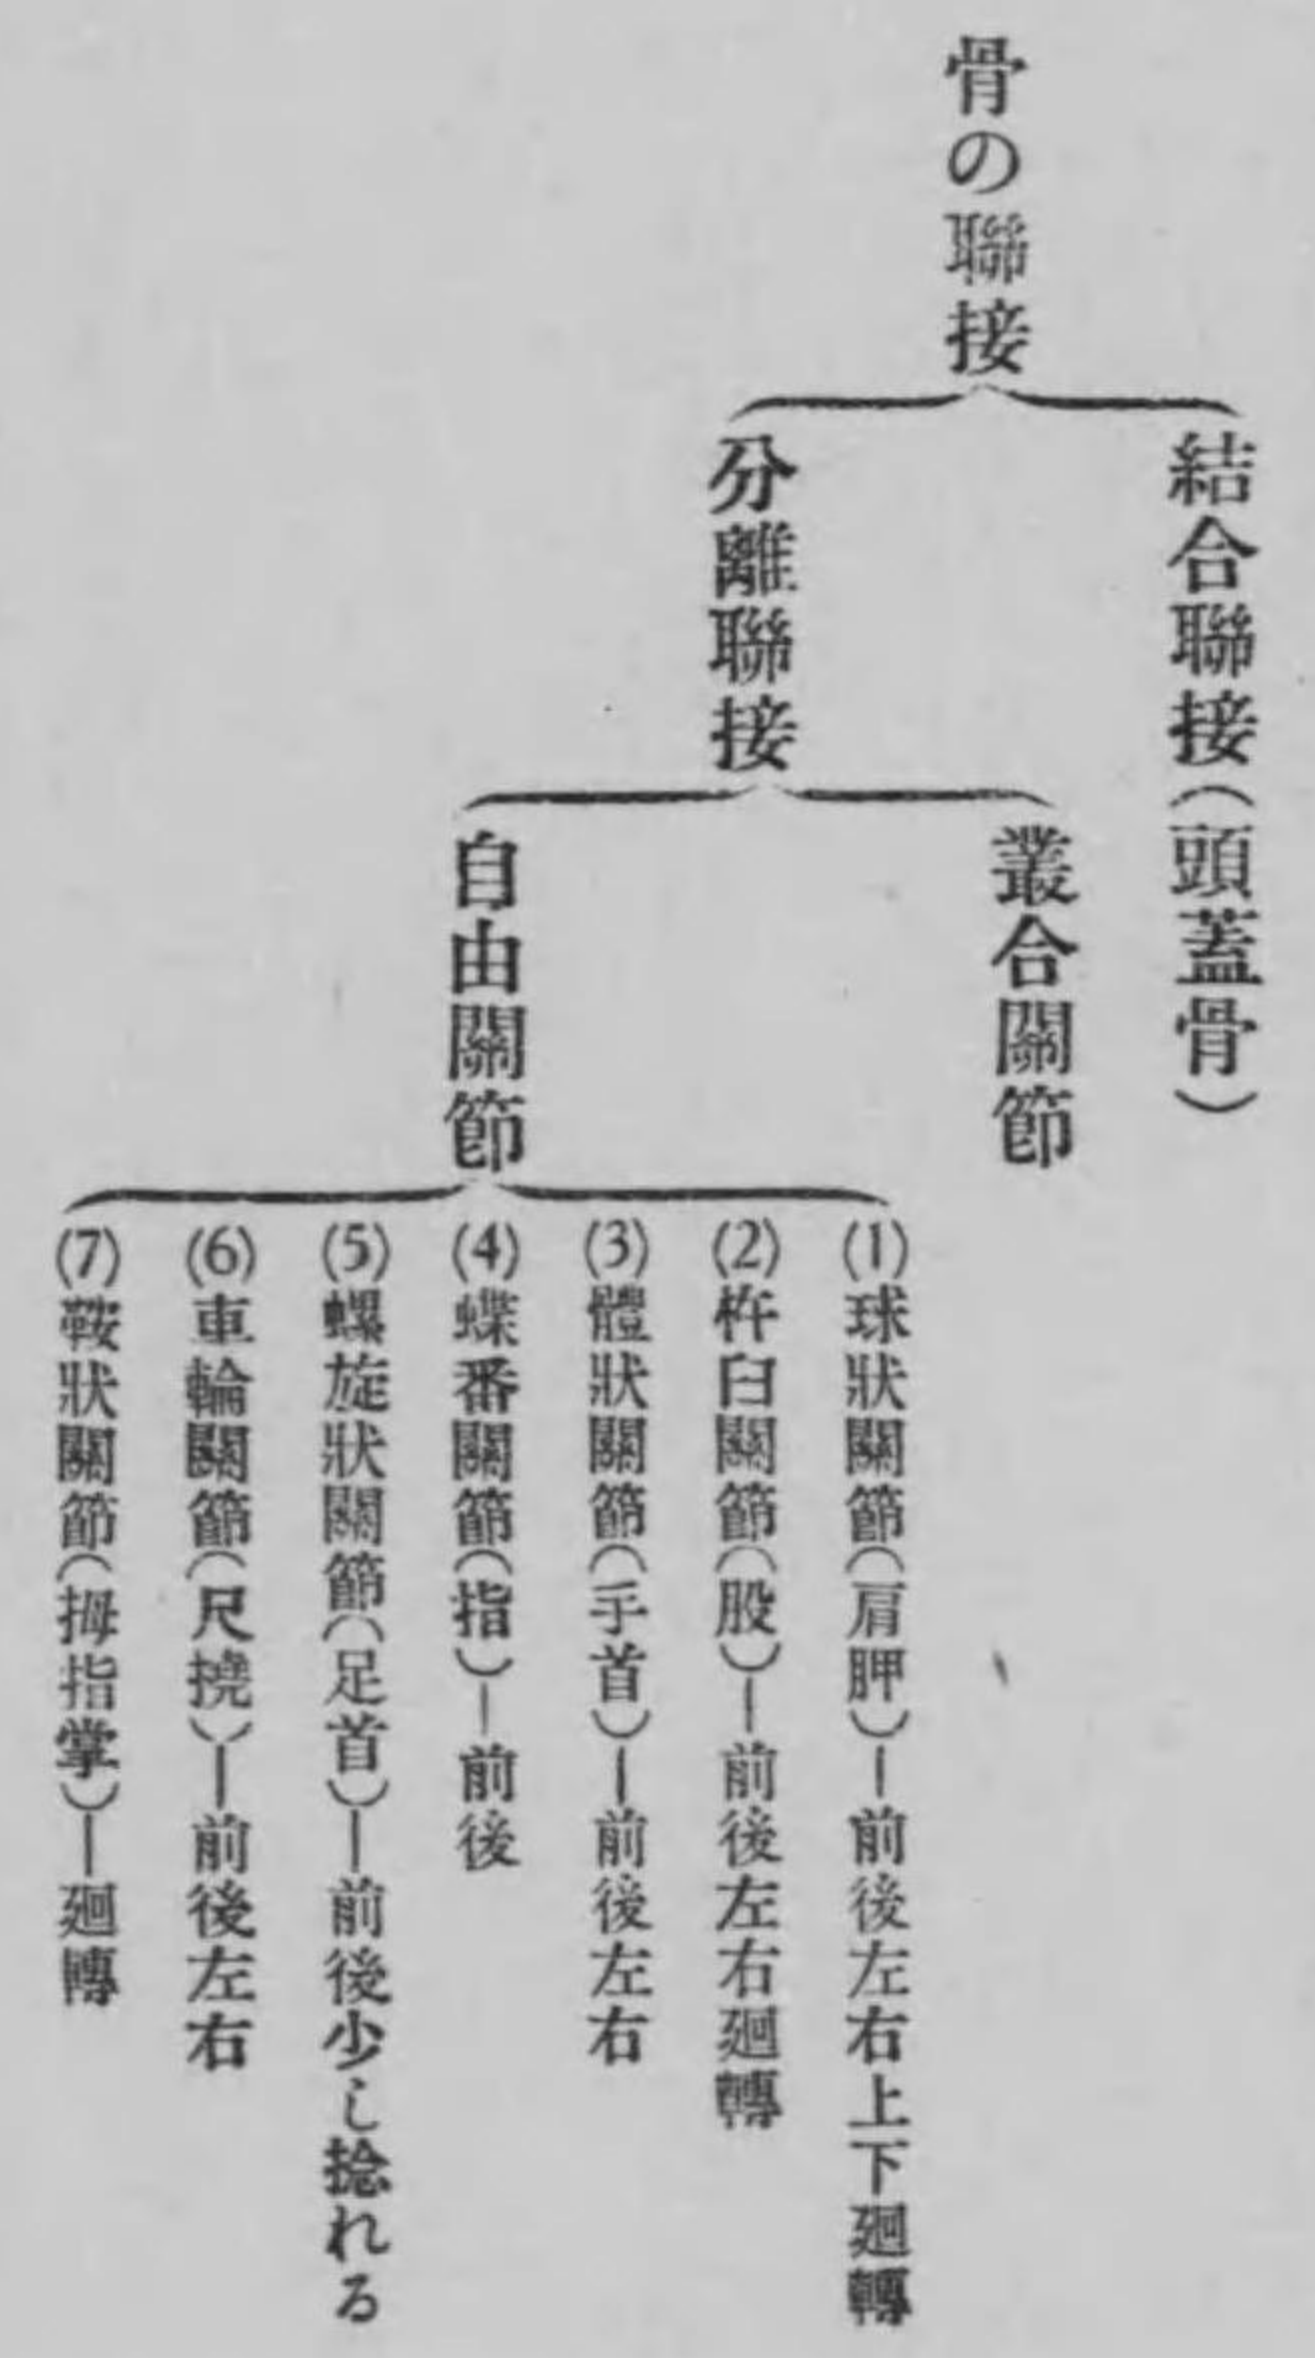 骨の聯接
結合聯接(頭蓋骨)
分離聯接
叢合關節
自由關節
(1)球狀關節(肩胛)—前後左右上下廻轉
(2)杵臼關節(股)—前後左右廻轉
(3)體狀關節(手首)—前後左右
(4)蝶番關節(指)—前後
(5)螺旋狀關節(足首)—前後少し捻れる
(6)車輪關節(尺撓)—前後左右
(7)鞍狀關節(拇指掌)—廻轉